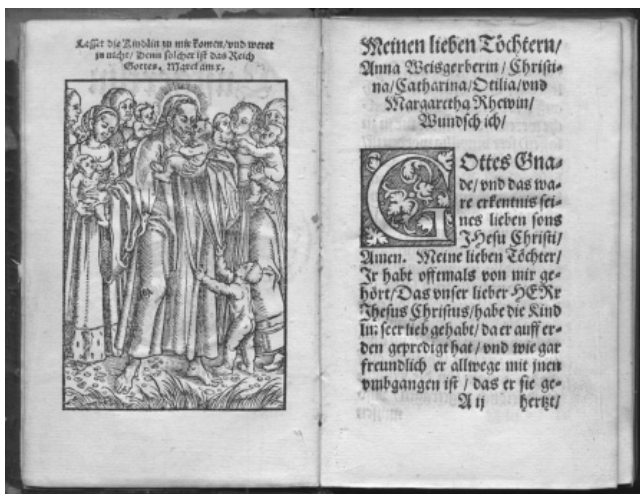 Lasset die Kindlin zu mir komen/vnd weret
jn nicht/ Denn solcher ist das Reich
Gottes. Marci am x.
Meinen lieben Töchtern/
Anna Weisgerberin/Christi-
na/Catharina/Otilia/vnd
Margaretha Rhewin/
Wundsch ich/
GOttes Gna-
de/vnd das wa-
re erkentnis sei-
nes lieben sons
JHesu Christi/
Amen. Meine lieben Töchter/
Jr habt offtmals von mir ge-
hört/Das vnser lieber HERr
Jhesus Christus/habe die Kind
lin seer lieb gehabt/da er auff er-
den gepredigt hat/vnd wie gar
freundlich er allwege mit jnen
vmbgangen ist/das er sie ge-
A ij hertzt/